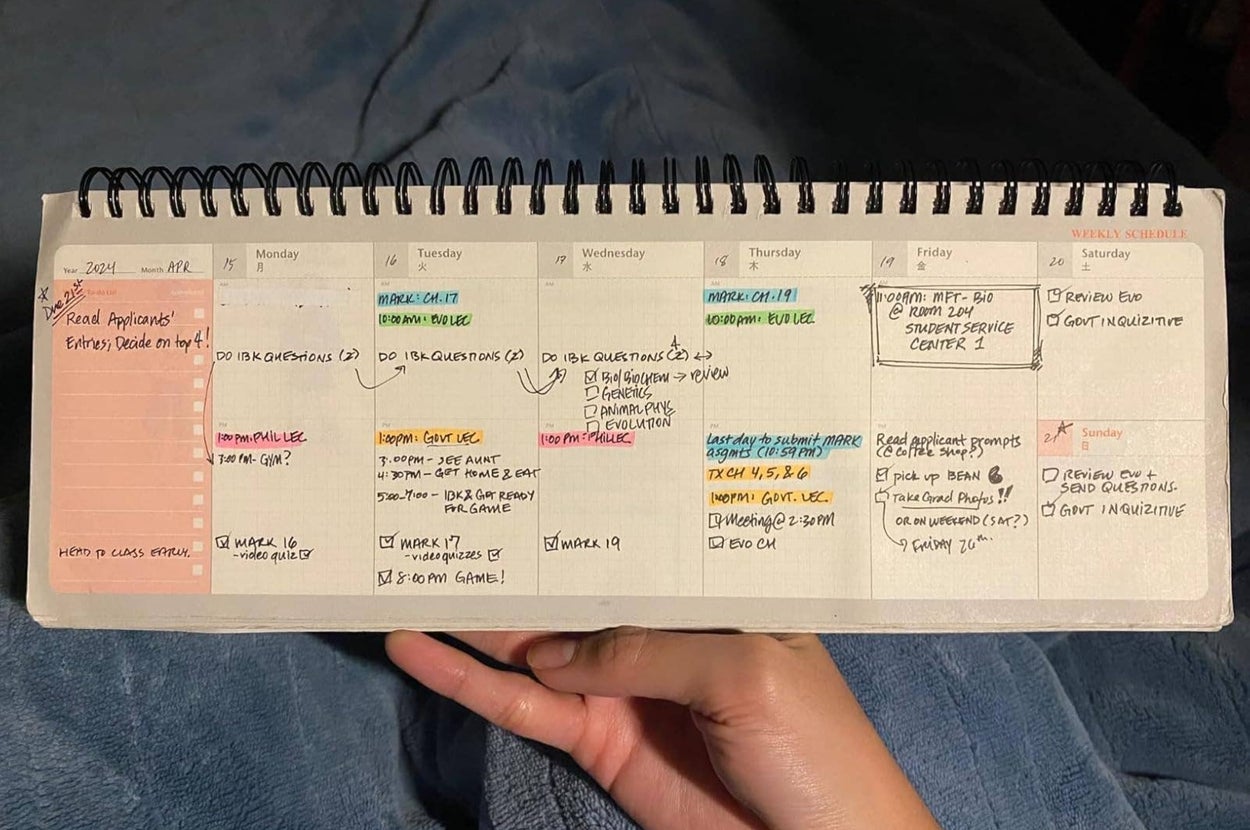 WEEKLY SCHEDULE
Year 2024 Month APR
★ Due 21st
To-do List
Read Applicants'
Entries; Decide on top 4!
HEAD TO CLASS EARLY.
15 Monday
月
AM
DO IBK QUESTIONS (2)
PM
1:00 PM: PHIL LEC
3:00 PM- GYM?
MARK 16
-video quiz
16 Tuesday
火
AM
MARK: CH. 17
10:00 AM: EVO LEC
DO IBK QUESTIONS (2)
PM
1:00PM: GOVT LEC
3:00PM- SEE AUNT
4:30PM- GET HOME & EAT
5:00-7:00 - IBK & GET READY
FOR GAME
MARK 17
-video quizzes
8:00 PM GAME!
17 Wednesday
水
AM
4
DO IBK QUESTIONS (2) ↔
BIO/BIOCHEM → review
GENETICS
ANIMAL PHYS
EVOLUTION
PM
1:00 PM: PHIL LEC
MARK 19
18 Thursday
木
AM
MARK: CH. 19
10:00 AM: EVO LEC
PM
Last day to submit MARK
asgmts (10:59 PM)
TX CH 4, 5, & 6
1:00PM: GOVT. LEC
Meeting @ 2:30PM
EVO CH
19 Friday
金
11:00AM: MFT- BIO
@ ROOM 204
STUDENT SERVICE
CENTER 1
PM
Read applicant prompts
(@ coffee shop?)
pick up BEAN
Take Grad Photos!!
OR ON WEEKEND (SAT?)
→ FRIDAY 26th.
20 Saturday
土
REVIEW EVO
GOVT INQUIZITIVE
21 ★ Sunday
日
REVIEW EVO +
SEND QUESTIONS.
GOVT INQUIZITIVE